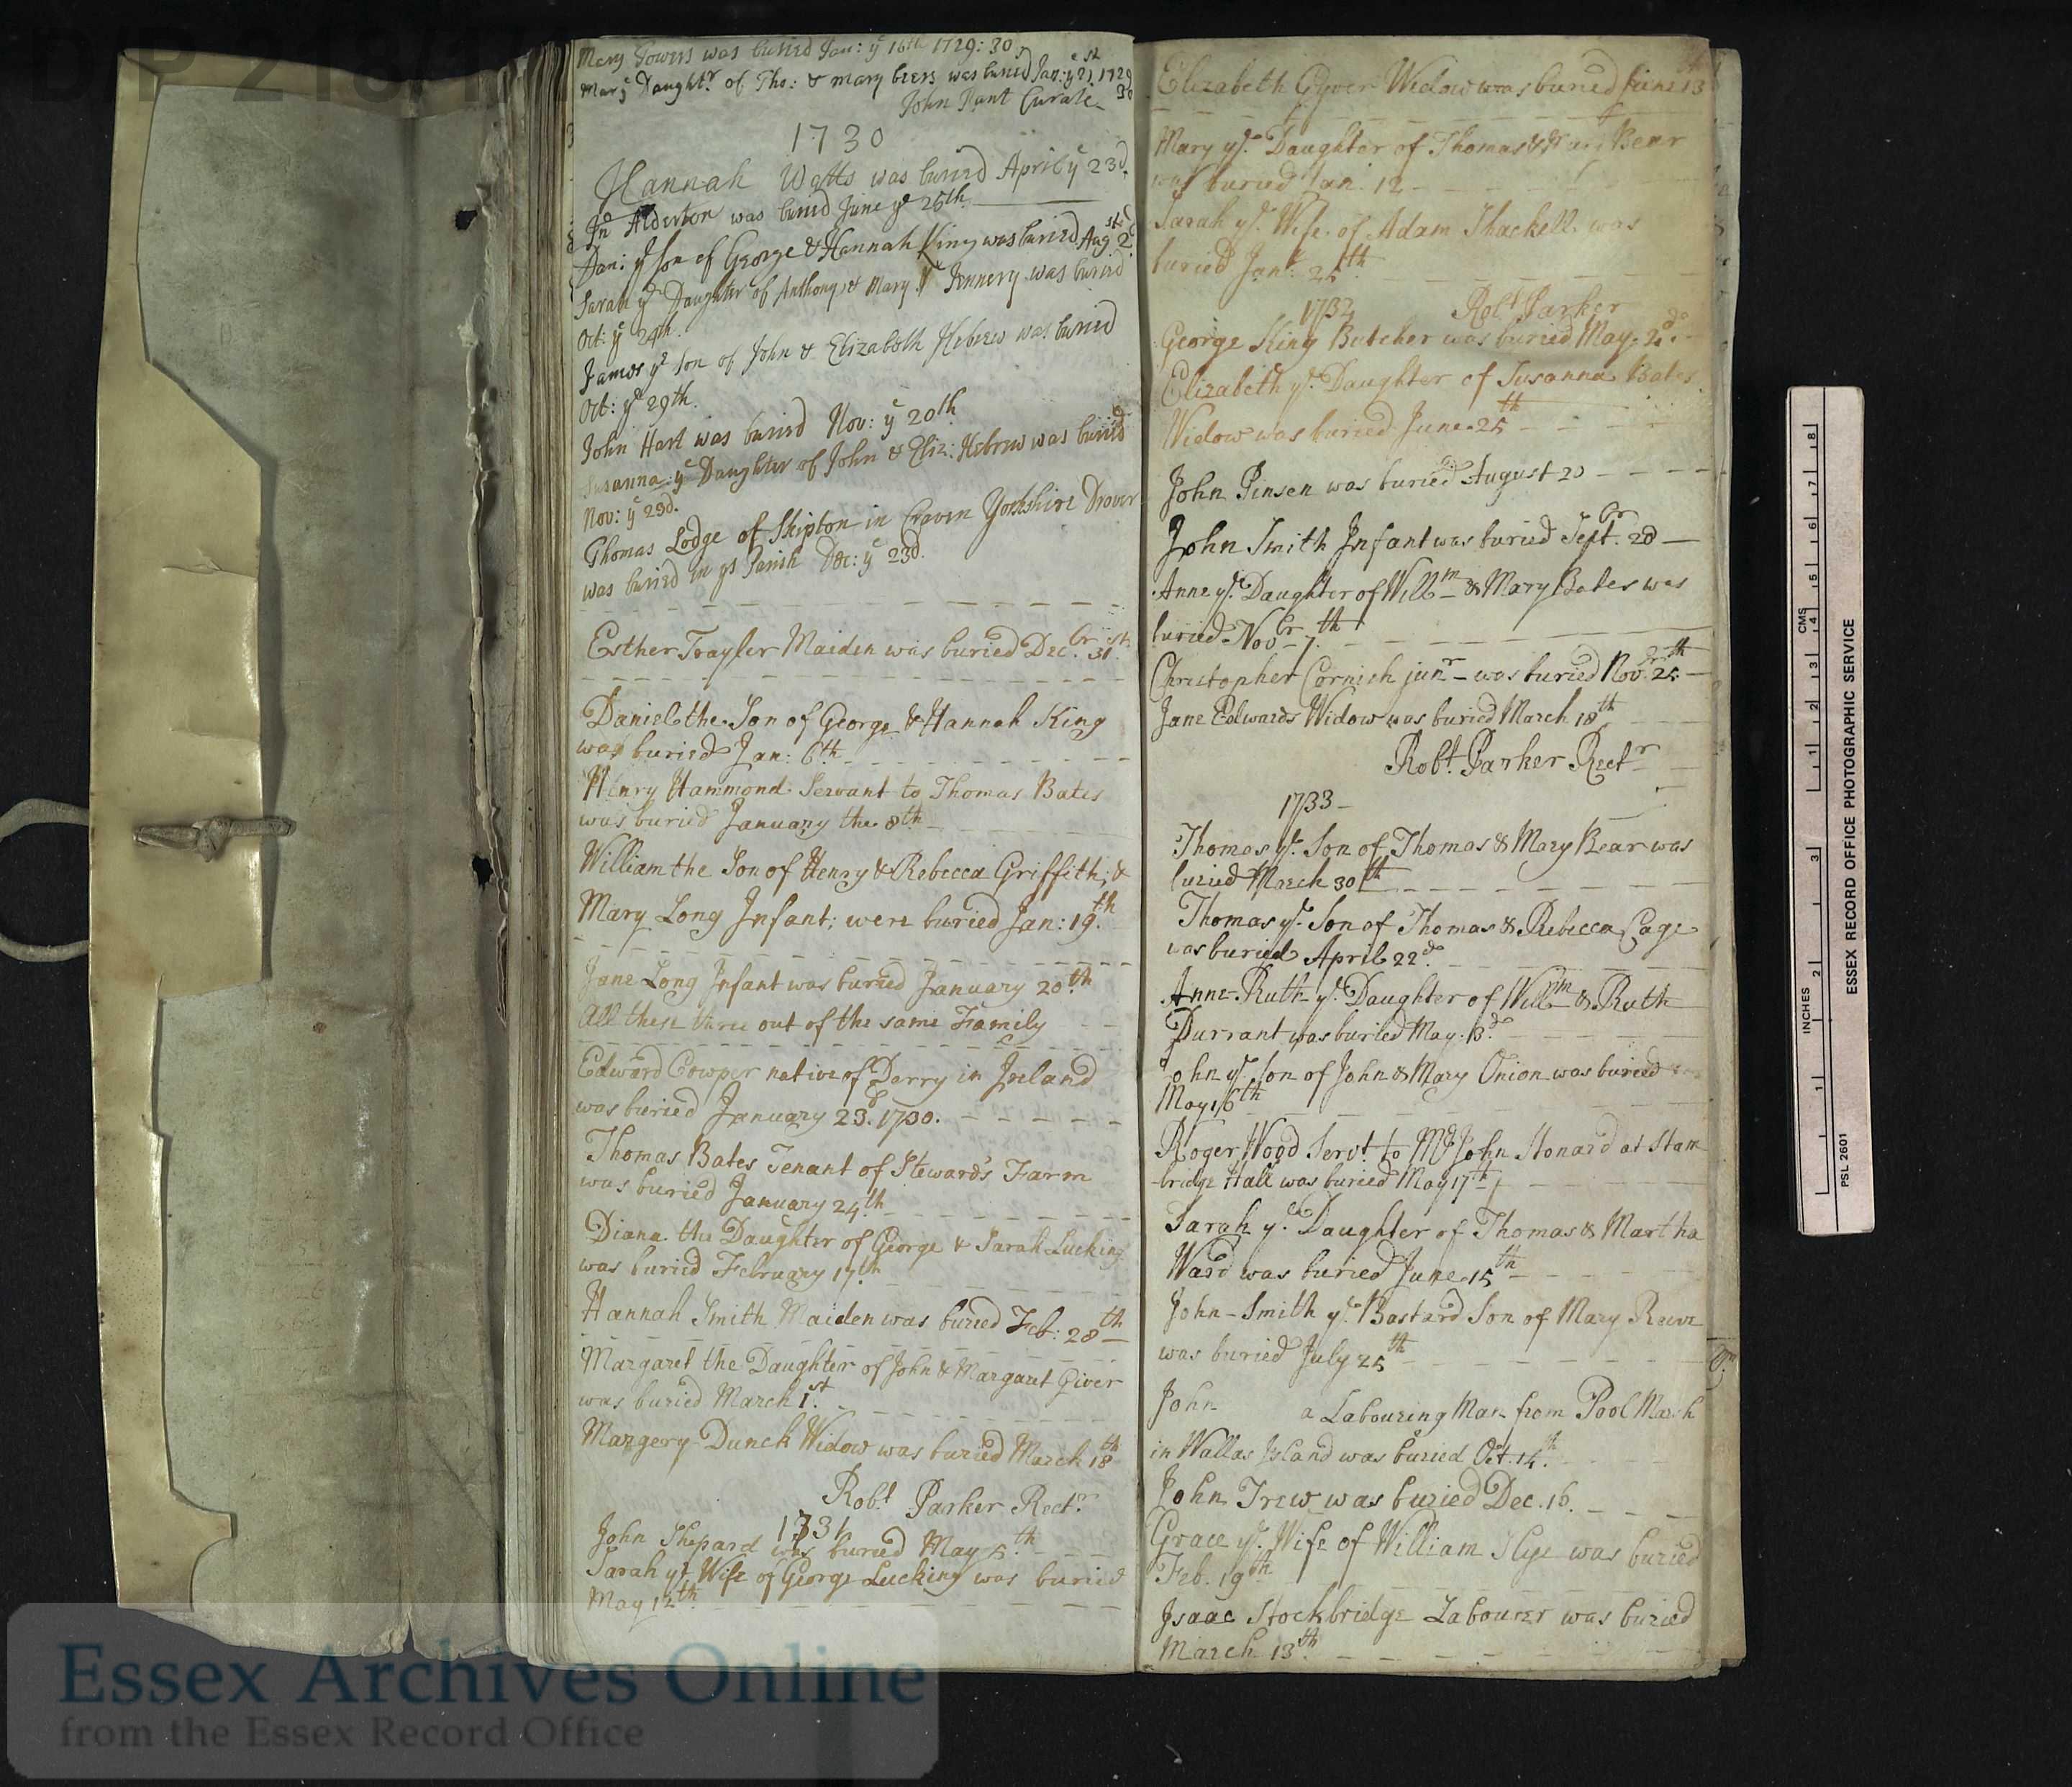 Mary Towers was buried Jan: ye 16th 1729:30
Mary Daughtr of Tho: & mary beers was buried Jan: ye 21st 1729
John Hunt Curate 30
1730
Hannah Watts was buried April ye 23d.
Jn Alderton was buried June ye 26th.
Dan: ye Son of George & Hannah King was buried Augst 2d
Sarah ye Daughter of Anthony & Mary Jennery was buried
Oct: ye 24th.
James ye Son of John & Elizabeth Hebrew was buried
Oct: ye 29th.
John Hart was buried Nov: ye 20th
Susanna: ye Daughter of John & Eliz: Hebrew was buried
Nov: ye 23d.
Thomas Lodge of Skipton in Craven Yorkshire Drover
was buried in ys Parish Dec: ye 23d.
Esther Trayler Maiden was buried Decbr. 31st.
Daniel the Son of George & Hannah King
was buried Jan: 6th
Henry Hammond Servant to Thomas Bates
was buried January the 8th
William the Son of Henry & Rebecca Griffith; &
Mary Long Infant; were buried Jan: 19th.
Jane Long Infant was buried January 20th.
All these three out of the same Family
Edward Cowper native of Derry in Ireland
was buried January 23d. 1730.
Thomas Bates Tenant of Steward's Farm
was buried January 24th.
Diana the Daughter of George & Sarah Lucking
was buried February 17th
Hannah Smith Maiden was buried Feb: 28th
Margaret the Daughter of John & Margaret Giver
was buried March 1st.
Margery Dunck Widow was buried March 18th
Robt Parker Rectr
1731
John Shepard was buried May 5th.
Sarah ye Wife of George Lucking was buried
May 12th.
Elizabeth Gyver Widow was buried June 13th
Mary ye. Daughter of Thomas & Mary Bear
was buried Jan: 12
Sarah ye. Wife of Adam Thackell was
buried Jan: 25th.
1732 Robt Parker
George King Butcher was buried May. 2d.
Elizabeth ye. Daughter of Susanna Bates
Widow was buried June 25th
John Pinsen was buried August 20
John Smith Infant was buried Septbr. 28
Anne ye. Daughter of Willm & Mary Bates was
buried Novbr 7th.
Christopher Cornish junr was buried Novbr 25th
Jane Edwards Widow was buried March 18th
Robt. Parker Rectr
1733
Thomas ye. Son of Thomas & Mary Bear was
buried March 30th
Thomas ye. Son of Thomas & Rebecca Cage
was buried April 22d.
Anne-Ruth ye. Daughter of Willm & Ruth
Durrant was buried May. 13.
John ye. Son of John & Mary Onion was buried
May 16th
Roger Wood Servt. to Mr John Stonard at Stam
bridge Hall was buried May 17th
Sarah ye Daughter of Thomas & Martha
Ward was buried June 15th
John-Smith ye. Bastard Son of Mary Reeve
was buried July 25th
John a Labouring Man from Pool Marsh
in Wallas Island was buried Oct. 14th.
John Trew was buried Dec. 16.
Grace ye. Wife of William Slye was buried
Feb. 19th
Isaac Stockbridge Labourer was buried
March 13th.
INCHES 1 2 3
CMS 1 2 3 4 5 6 7 8
ESSEX RECORD OFFICE PHOTOGRAPHIC SERVICE
PSL 2601
Essex Archives Online
from the Essex Record Office